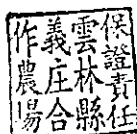 保證責任
雲林縣
義庄合
作農場